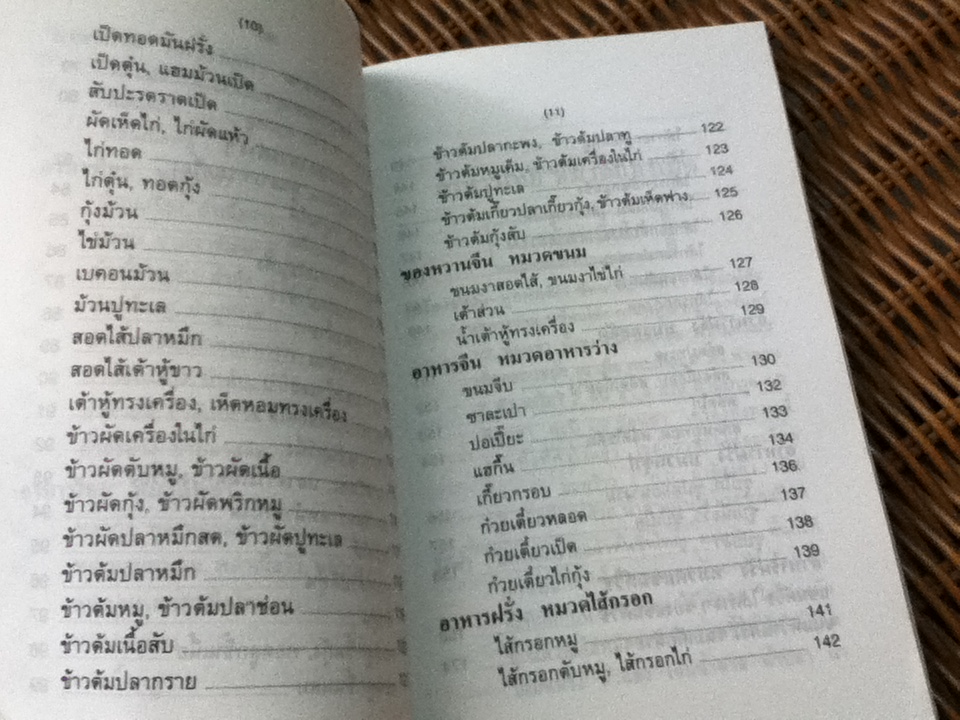 (10)
เป็ดทอดมันฝรั่ง
เป็ดตุ๋น, แฮมม้วนเป็ด
สับปะรดราดเป็ด
ผัดเห็ดไก่, ไก่ผัดแห้ว
ไก่ทอด
ไก่ตุ๋น, ทอดกุ้ง
กุ้งม้วน
ไข่ม้วน
เบคอนม้วน
ม้วนปูทะเล
สอดไส้ปลาหมึก
สอดไส้เต้าหู้ขาว
เต้าหู้ทรงเครื่อง, เห็ดหอมทรงเครื่อง
ข้าวผัดเครื่องในไก่
ข้าวผัดตับหมู, ข้าวผัดเนื้อ
ข้าวผัดกุ้ง, ข้าวผัดพริกหมู
ข้าวผัดปลาหมึกสด, ข้าวผัดปูทะเล
ข้าวต้มปลาหมึก
ข้าวต้มหมู, ข้าวต้มปลาช่อน
ข้าวต้มเนื้อสับ
ข้าวต้มปลากราย
(11)
ข้าวต้มปลากะพง, ข้าวต้มปลาทู 122
ข้าวต้มหมูเค็ม, ข้าวต้มเครื่องในไก่ 123
ข้าวต้มปูทะเล 124
ข้าวต้มเกี๊ยวปลาเกี๊ยวกุ้ง, ข้าวต้มเห็ดฟาง 125
ข้าวต้มกุ้งสับ 126
ของหวานจีน หมวดขนม
ขนมงาสอดไส้, ขนมงาไข่ไก่ 127
เต้าส่วน 128
น้ำเต้าหู้ทรงเครื่อง 129
อาหารจีน หมวดอาหารว่าง
ขนมจีบ 130
ซาละเปา 132
ปอเปี๊ยะ 133
แฮกึ๊น 134
เกี๊ยวกรอบ 136
ก๋วยเตี๋ยวหลอด 137
ก๋วยเตี๋ยวเป็ด 138
ก๋วยเตี๋ยวไก่กุ้ง 139
อาหารฝรั่ง หมวดไส้กรอก
ไส้กรอกหมู 141
ไส้กรอกตับหมู, ไส้กรอกไก่ 142